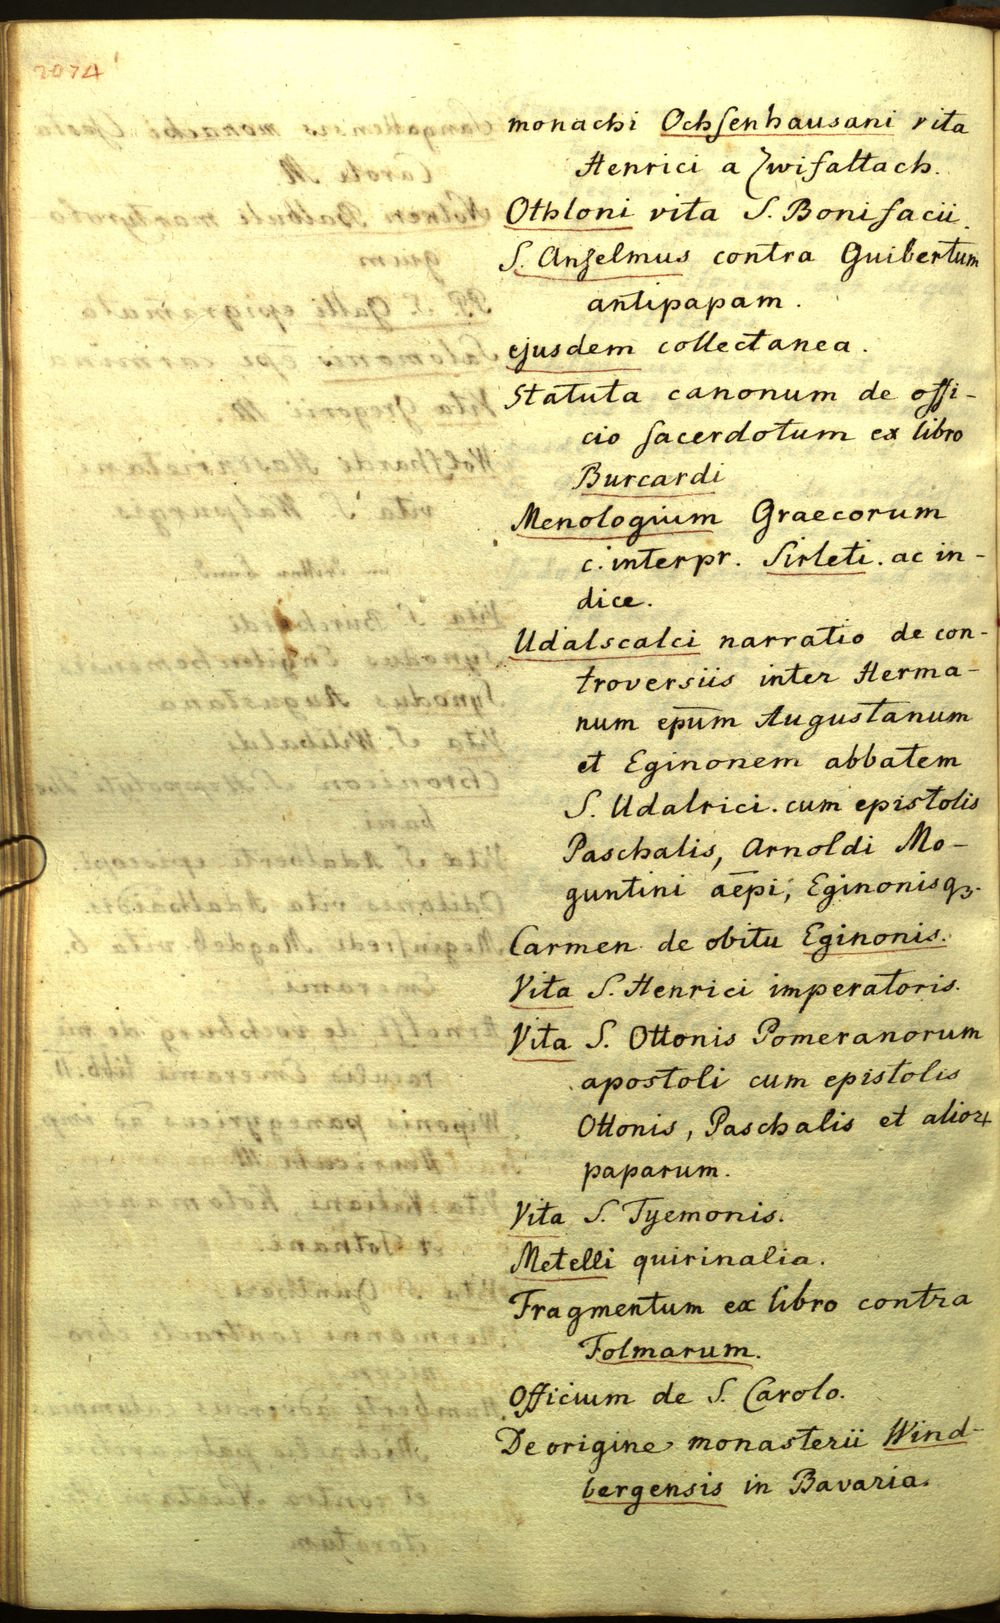 2074
monachi Ochsenhausani vita
Henrici a Zwifaltach.
Othloni vita S. Bonifacii.
S. Anselmus contra Guibertum
antipapam.
ejusdem collectanea.
Statuta canonum de offi-
cio sacerdotum ex libro
Burcardi
Menologium Graecorum
c. interpr. Sirleti. ac in-
dice.
Udalscalci narratio de con-
troversiis inter Herma-
num ep̄um Augustanum
et Eginonem abbatem
S. Udalrici. cum epistolis
Paschalis, Arnoldi Mo-
guntini aēpi, Eginonisqꝫ.
Carmen de obitu Eginonis.
Vita S. Henrici imperatoris.
Vita S. Ottonis Pomeranorum
apostoli cum epistolis
Ottonis, Paschalis et alioꝝ
paparum.
Vita S. Tyemonis.
Metelli quirinalia.
Fragmentum ex libro contra
Folmarum.
Officium de S. Carolo.
De origine monasterii Wind-
bergensis in Bavaria.